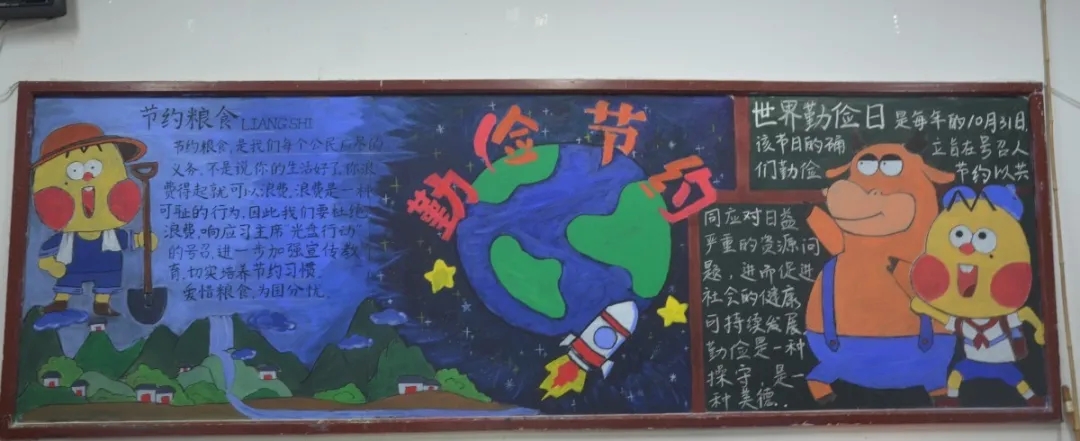 节约粮食 LIANGSHI
节约粮食,是我们每个公民应尽的
义务,不是说你的生活好了,你浪
费得起就可以浪费.浪费是一种
可耻的行为.因此我们要杜绝
浪费,响应习主席"光盘行动"
的号召,进一步加强宣传教
育,切实培养节约习惯.
爱惜粮食,为国分忧.
勤俭节约
世界勤俭日是每年的10月31日.
该节日的确立旨在号召人
们勤俭节约以共
同应对日益
严重的资源问
题,进而促进
社会的健康
可持续发展.
勤俭是一种
操守,是一
种美德.